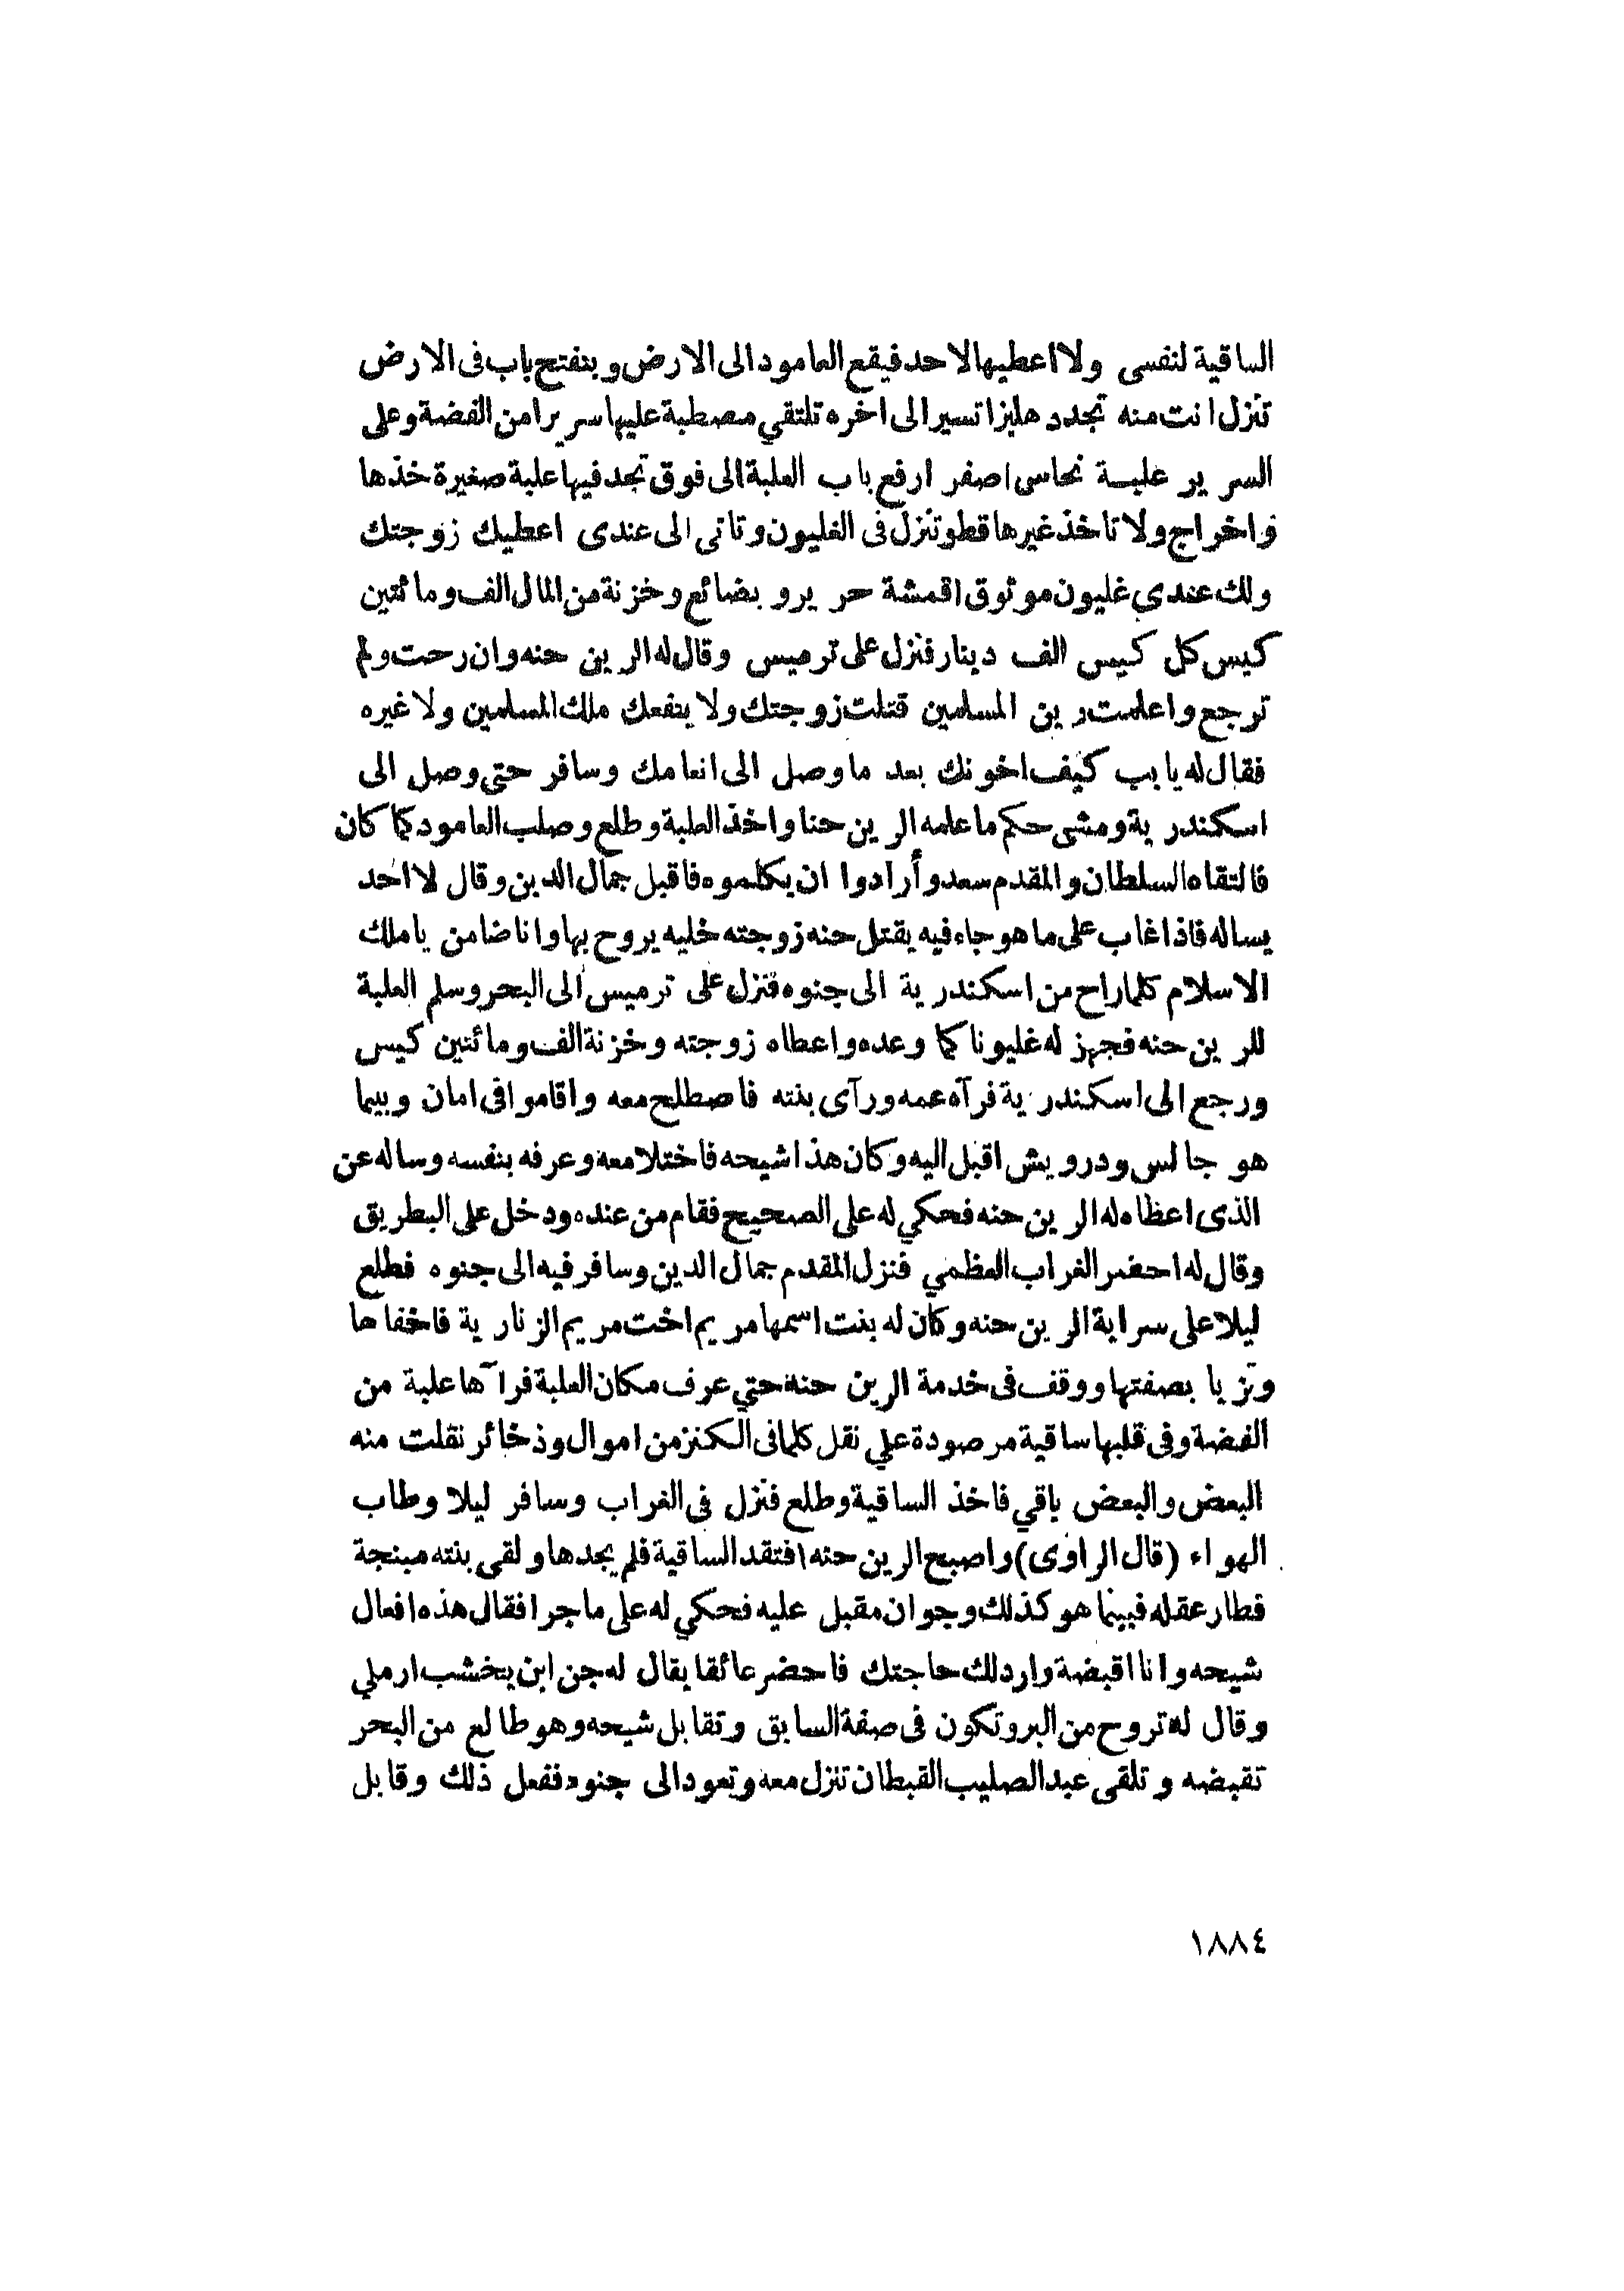 الساقية لنفسى ولا اعطيها لاحد فيقع العامود الى الارض وينفتح باب فى الارض
تنزل انت منه تجد دهليزا تسير الى اخره تلتقي مصطبة عليها سريرا من الفضة وعلى
السرير علبة نحاس اصفر ارفع باب العلبة الى فوق تجد فيها علبة صغيرة خذها
واخراج ولا تاخذ غيرها قط وتنزل فى الغليون وتاتى الى عندى اعطيك زوجتك
ولك عندي غليون موثوق اقمشة حرير وبضائع وخزنة من المال الف ومائتين
كيس كل كيس الف دينار فنزل على ترميس وقال له الرين حنه وان رحت ولم
ترجع واعلمت رين المسلمين قتلت زوجتك ولا ينفعك ملك المسلمين ولا غيره
فقال له يا بب كيف اخونك بعد ما وصل الى انعامك وسافر حتى وصل الى
اسكندرية ومشى حكم ما علمه الرين حنا واخذ العلبة وطلع وصلب العامود كما كان
فالتقاه السلطان والمقدم سعد وأرادوا ان يكلموه فاقبل جمال الدين وقال لا احد
يساله فاذا غاب على ما هو جاء فيه يقتل حنه زوجته خليه يروح بها وانا ضامن يا ملك
الاسلام كلما راح من اسكندرية الى جنوه فنزل على ترميس الى البحر وسلم العلبة
للرين حنه فجهز له غليونا كما وعده واعطاه زوجته وخزنة الف ومائتين كيس
ورجع الى اسكندرية فرآه عمه ورآى بنته فاصطلح معه واقاموا فى امان وبيما
هو جالس ودرويش اقبل اليه وكان هذا شيحه فاختلا معه وعرفه بنفسه وساله عن
الذى اعظاه له الرين حنه فحكي له على الصحيح فقام من عنده ودخل على البطريق
وقال له احضر الغراب العظمي فنزل المقدم جمال الدين وسافر فيه الى جنوه فطلع
ليلا على سراية الرين حنه وكان له بنت اسمها مريم اخت مريم الزنارية فاخفاها
وتزيا بصفتها ووقف فى خدمة الرين حنه حتي عرف مكان العلبة فرآها علبة من
الفضة وفى قلبها ساقية مرصودة علي نقل كلما فى الكنز من اموال وذخائر نقلت منه
البعض والبعض باقي فاخذ الساقية وطلع فنزل فى الغراب وسافر ليلا وطاب
الهواء (قال الراوى) واصبح الرين حنه افتقد الساقية فلم يجدها ولقى بنته مبنجة
فطار عقله فبينما هو كذلك وجوان مقبل عليه فحكي له على ما جرا فقال هذه افعال
شيحه وانا اقبضة وارد لك حاجتك فاحضر عائقا يقال له جن ابن يخشب ارملي
وقال له تروح من البر وتكون فى صفة السابق وتقابل شيحه وهو طالع من البحر
تقبضه وتلقى عبد الصليب القبطان تنزل معه وتعود الى جنوه ففعل ذلك وقابل
١٨٨٤